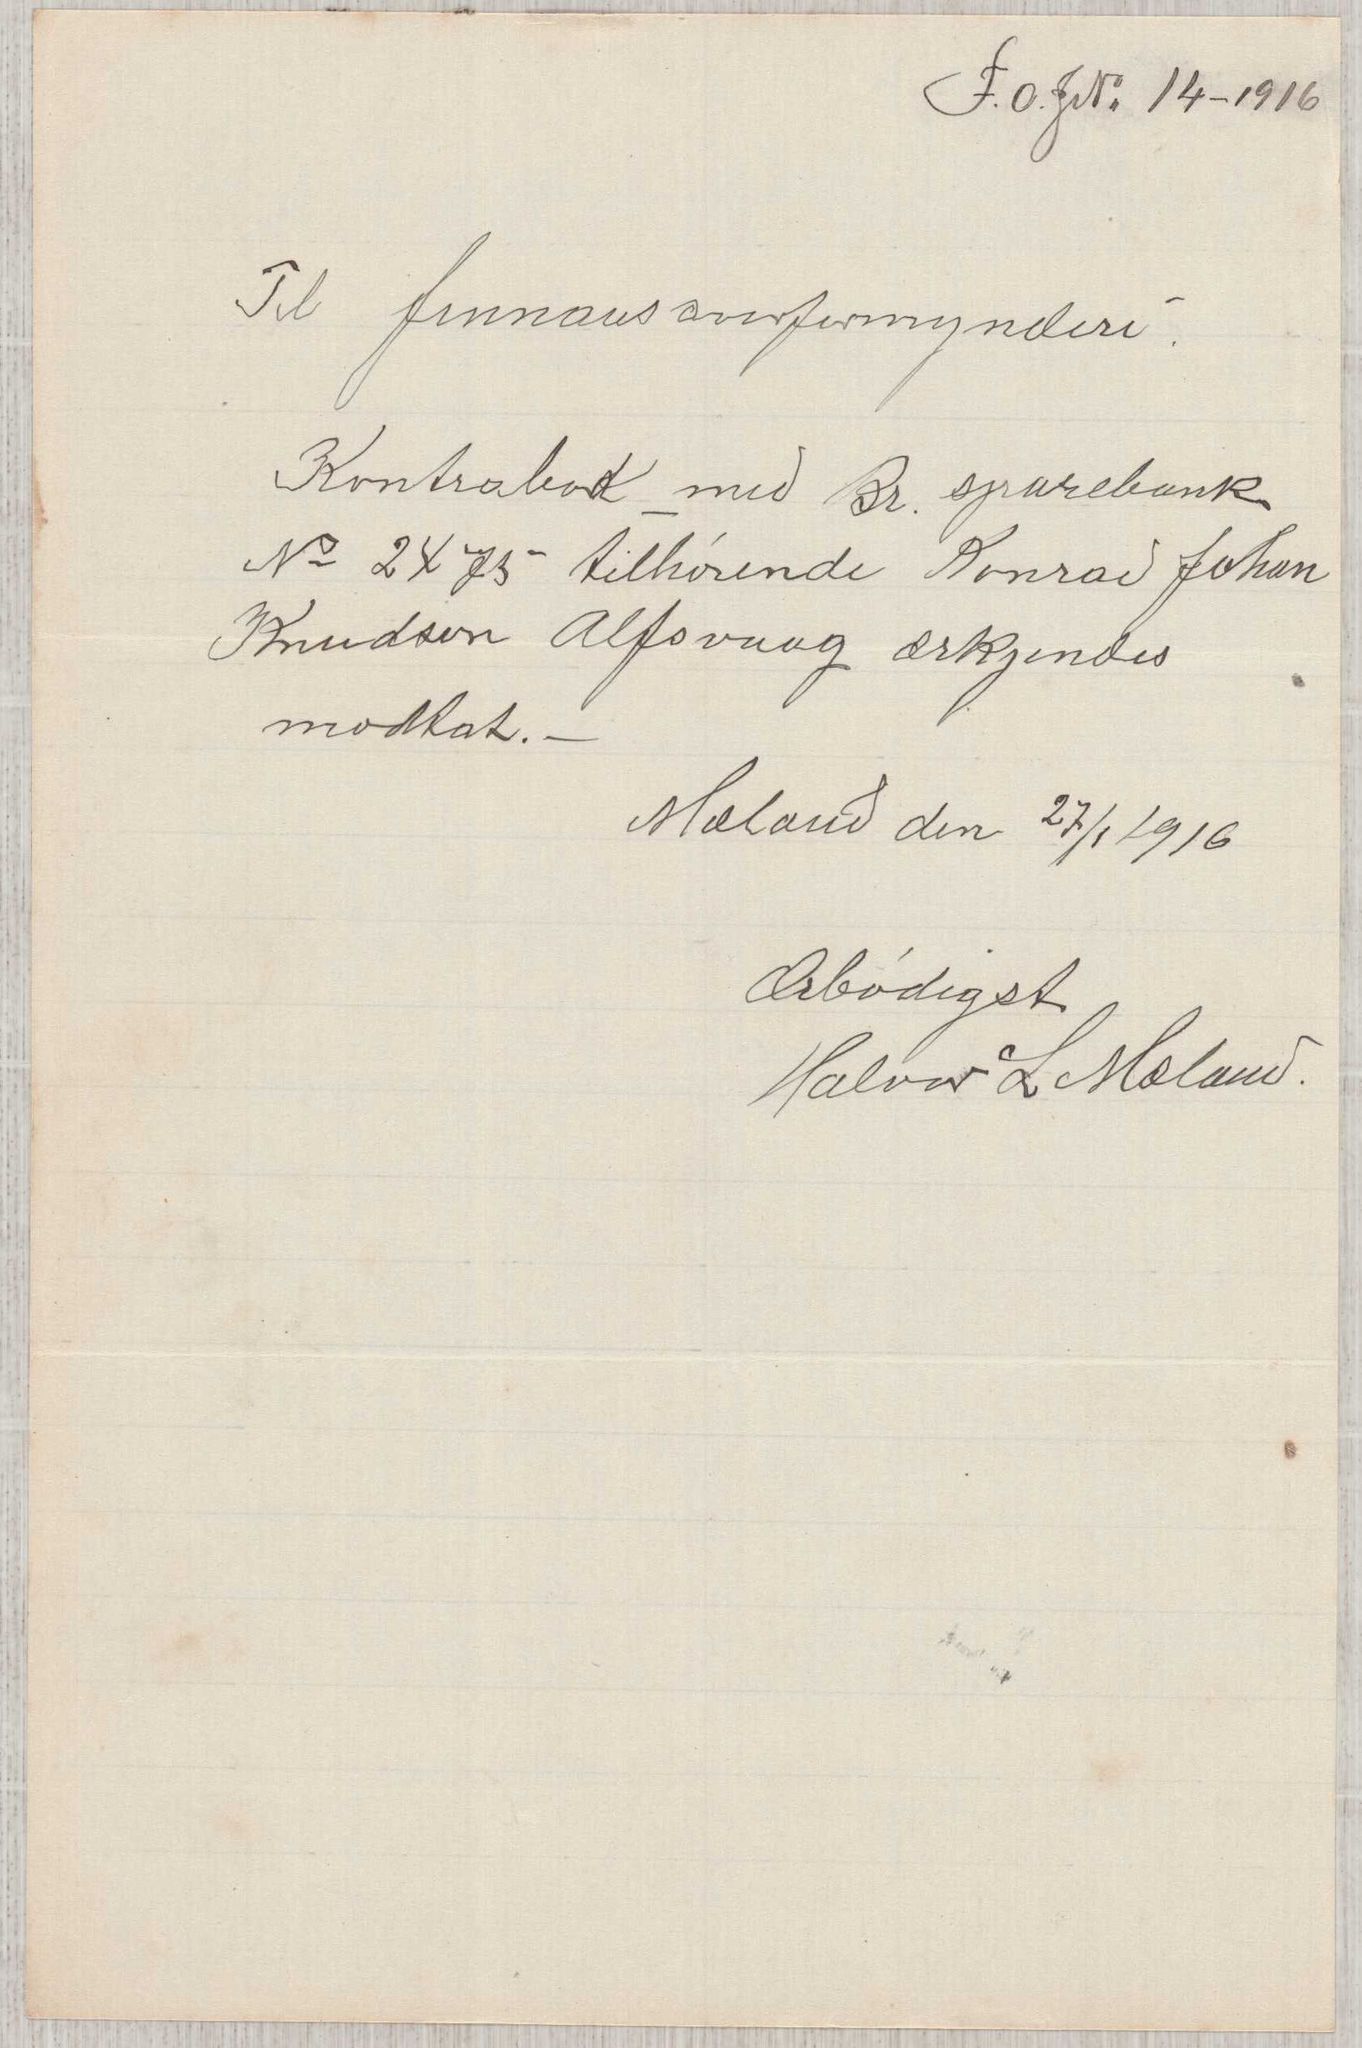 F.O.J.No. 14-1916
Til finnaas overformynderi.
Kontrabok med Br. sparebank
No 2475 tilhörende Konrad Johan
Knudsen Alfsvaag erkjendes
modtat. –
Mæland den 27/1 1916
Ærbödigst
Halvor L Mæland.